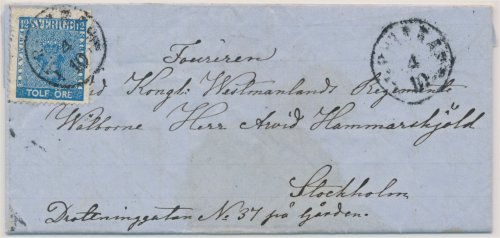 12 SVERIGE 12
TOLF ÖRE
4
10
4
10
Fouriren
vid Kongl: Westmanlands Regemente
Wälborne Herr Arvid Hammarskjöld
Stockholm
Drottninggatan No 37 på Gården.